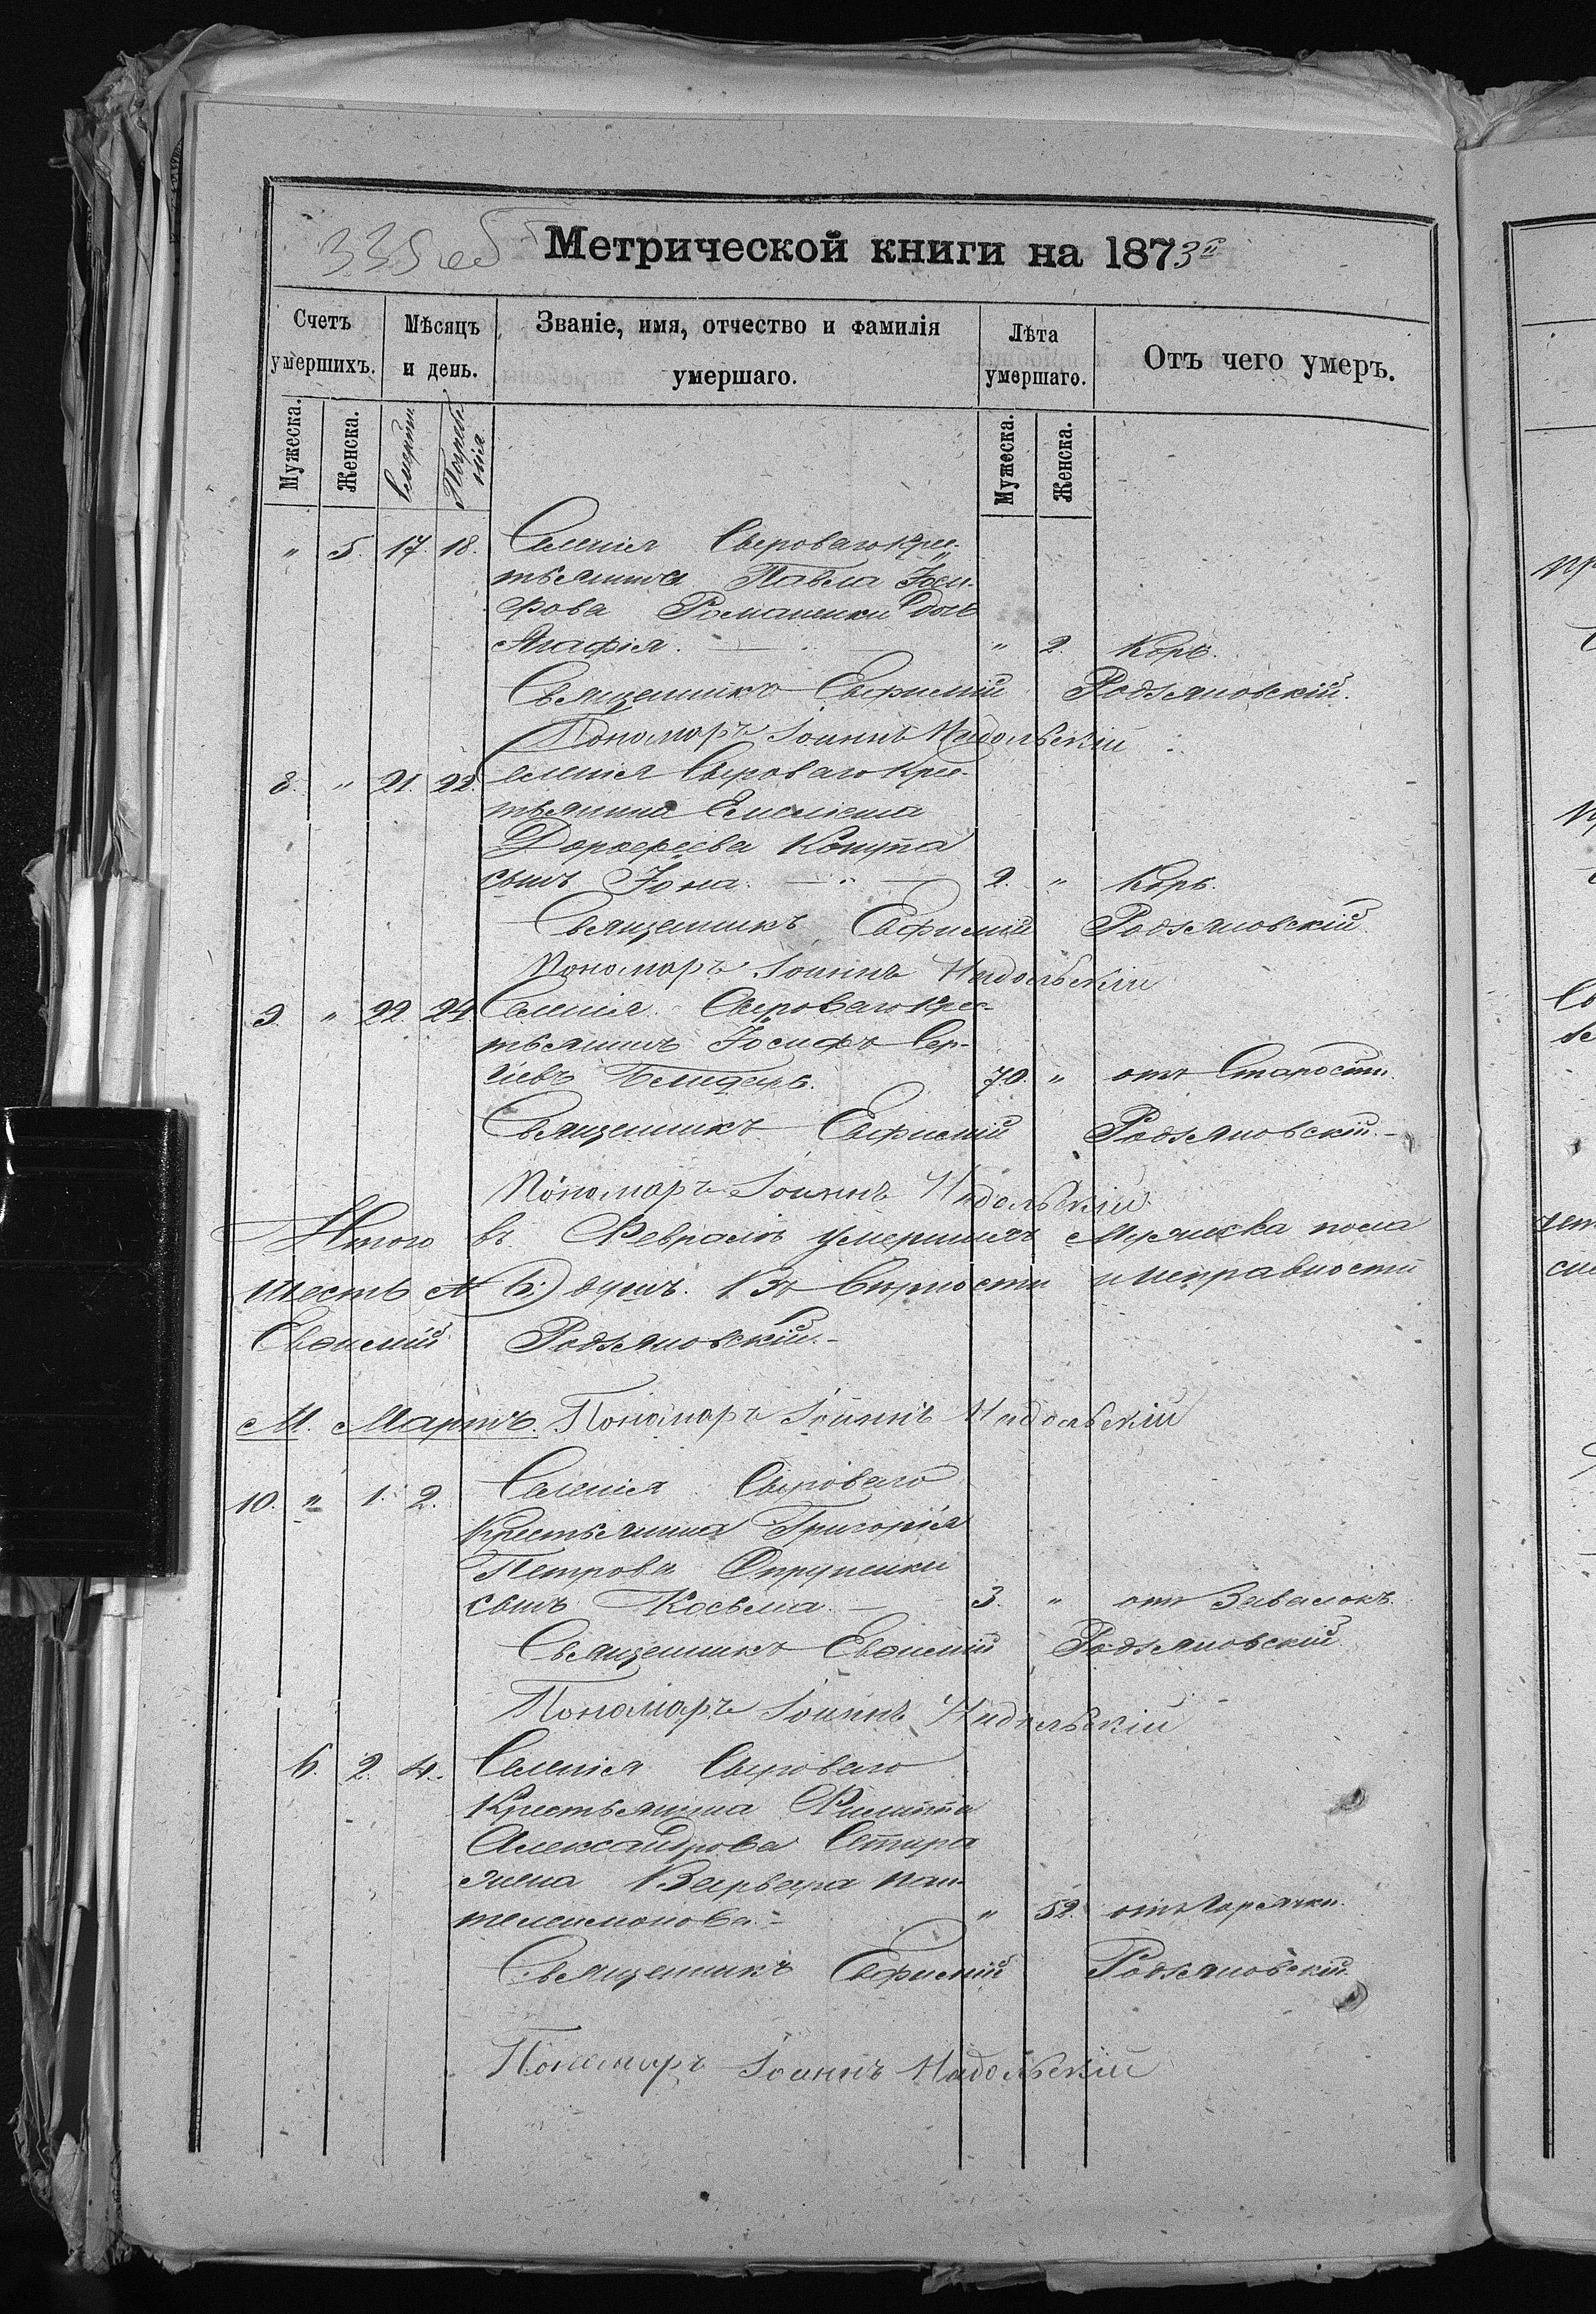 335 об
Метрической книги на 1873й
Счетъ умершихъ. Мѣсяцъ и день. Званіе, имя, отчество и фамилія умершаго. Лѣта умершаго. Отъ чего умеръ.
Мужеска. Женска. Смерти. Погребенія. Мужеска. Женска.
" 5. 17. 18. Селенія Сыроваго Крес-
тьянина Павла Іоси-
фова Романенки дочь
Агафія. " 2. Корь.
Священникъ Евфимій Родзяновскій.
Пономарь Іоаннъ Надольскій
8. " 21. 22. Селенія Сыроваго Крес-
тьянина Емеліана
Дорофеева Копута
сынъ Іона. 2. " Корь.
Священникъ Евфимій Родзяновскій
Пономарь Іоаннъ Надольскій
9. " 22. 24 Селенія Сыроваго Крес-
тьянинъ Іосифъ Сер-
гіевъ 70. " отъ Старости.
Священникъ Евфимій Родзяновскій.
Пономарь Іоаннъ Надольскій
Итого въ Февралѣ умершихъ Мужеска пола
шесть душъ. Въ верности и исправности
Евѳимій Родзяновскій.
М. Мартъ. Пономарь Іоаннъ Надольскій
10. " 1. 2. Селенія Сыроваго
Крестьянина Григорія
Петрова Опрушенки
сынъ Косьма. 3. " отъ Завалокъ.
Священникъ Евѳимій Родзяновскій
Пономарь Іоаннъ Надольскій
6. 2. 4. Селенія Сыроваго
Крестьянина Филиппа
Александрова
жена Варвара Пан-
телеимонова. " 52. отъ Горячки.
Священникъ Евфимій Родзяновскій.
Пономарь Іоаннъ Надольскій